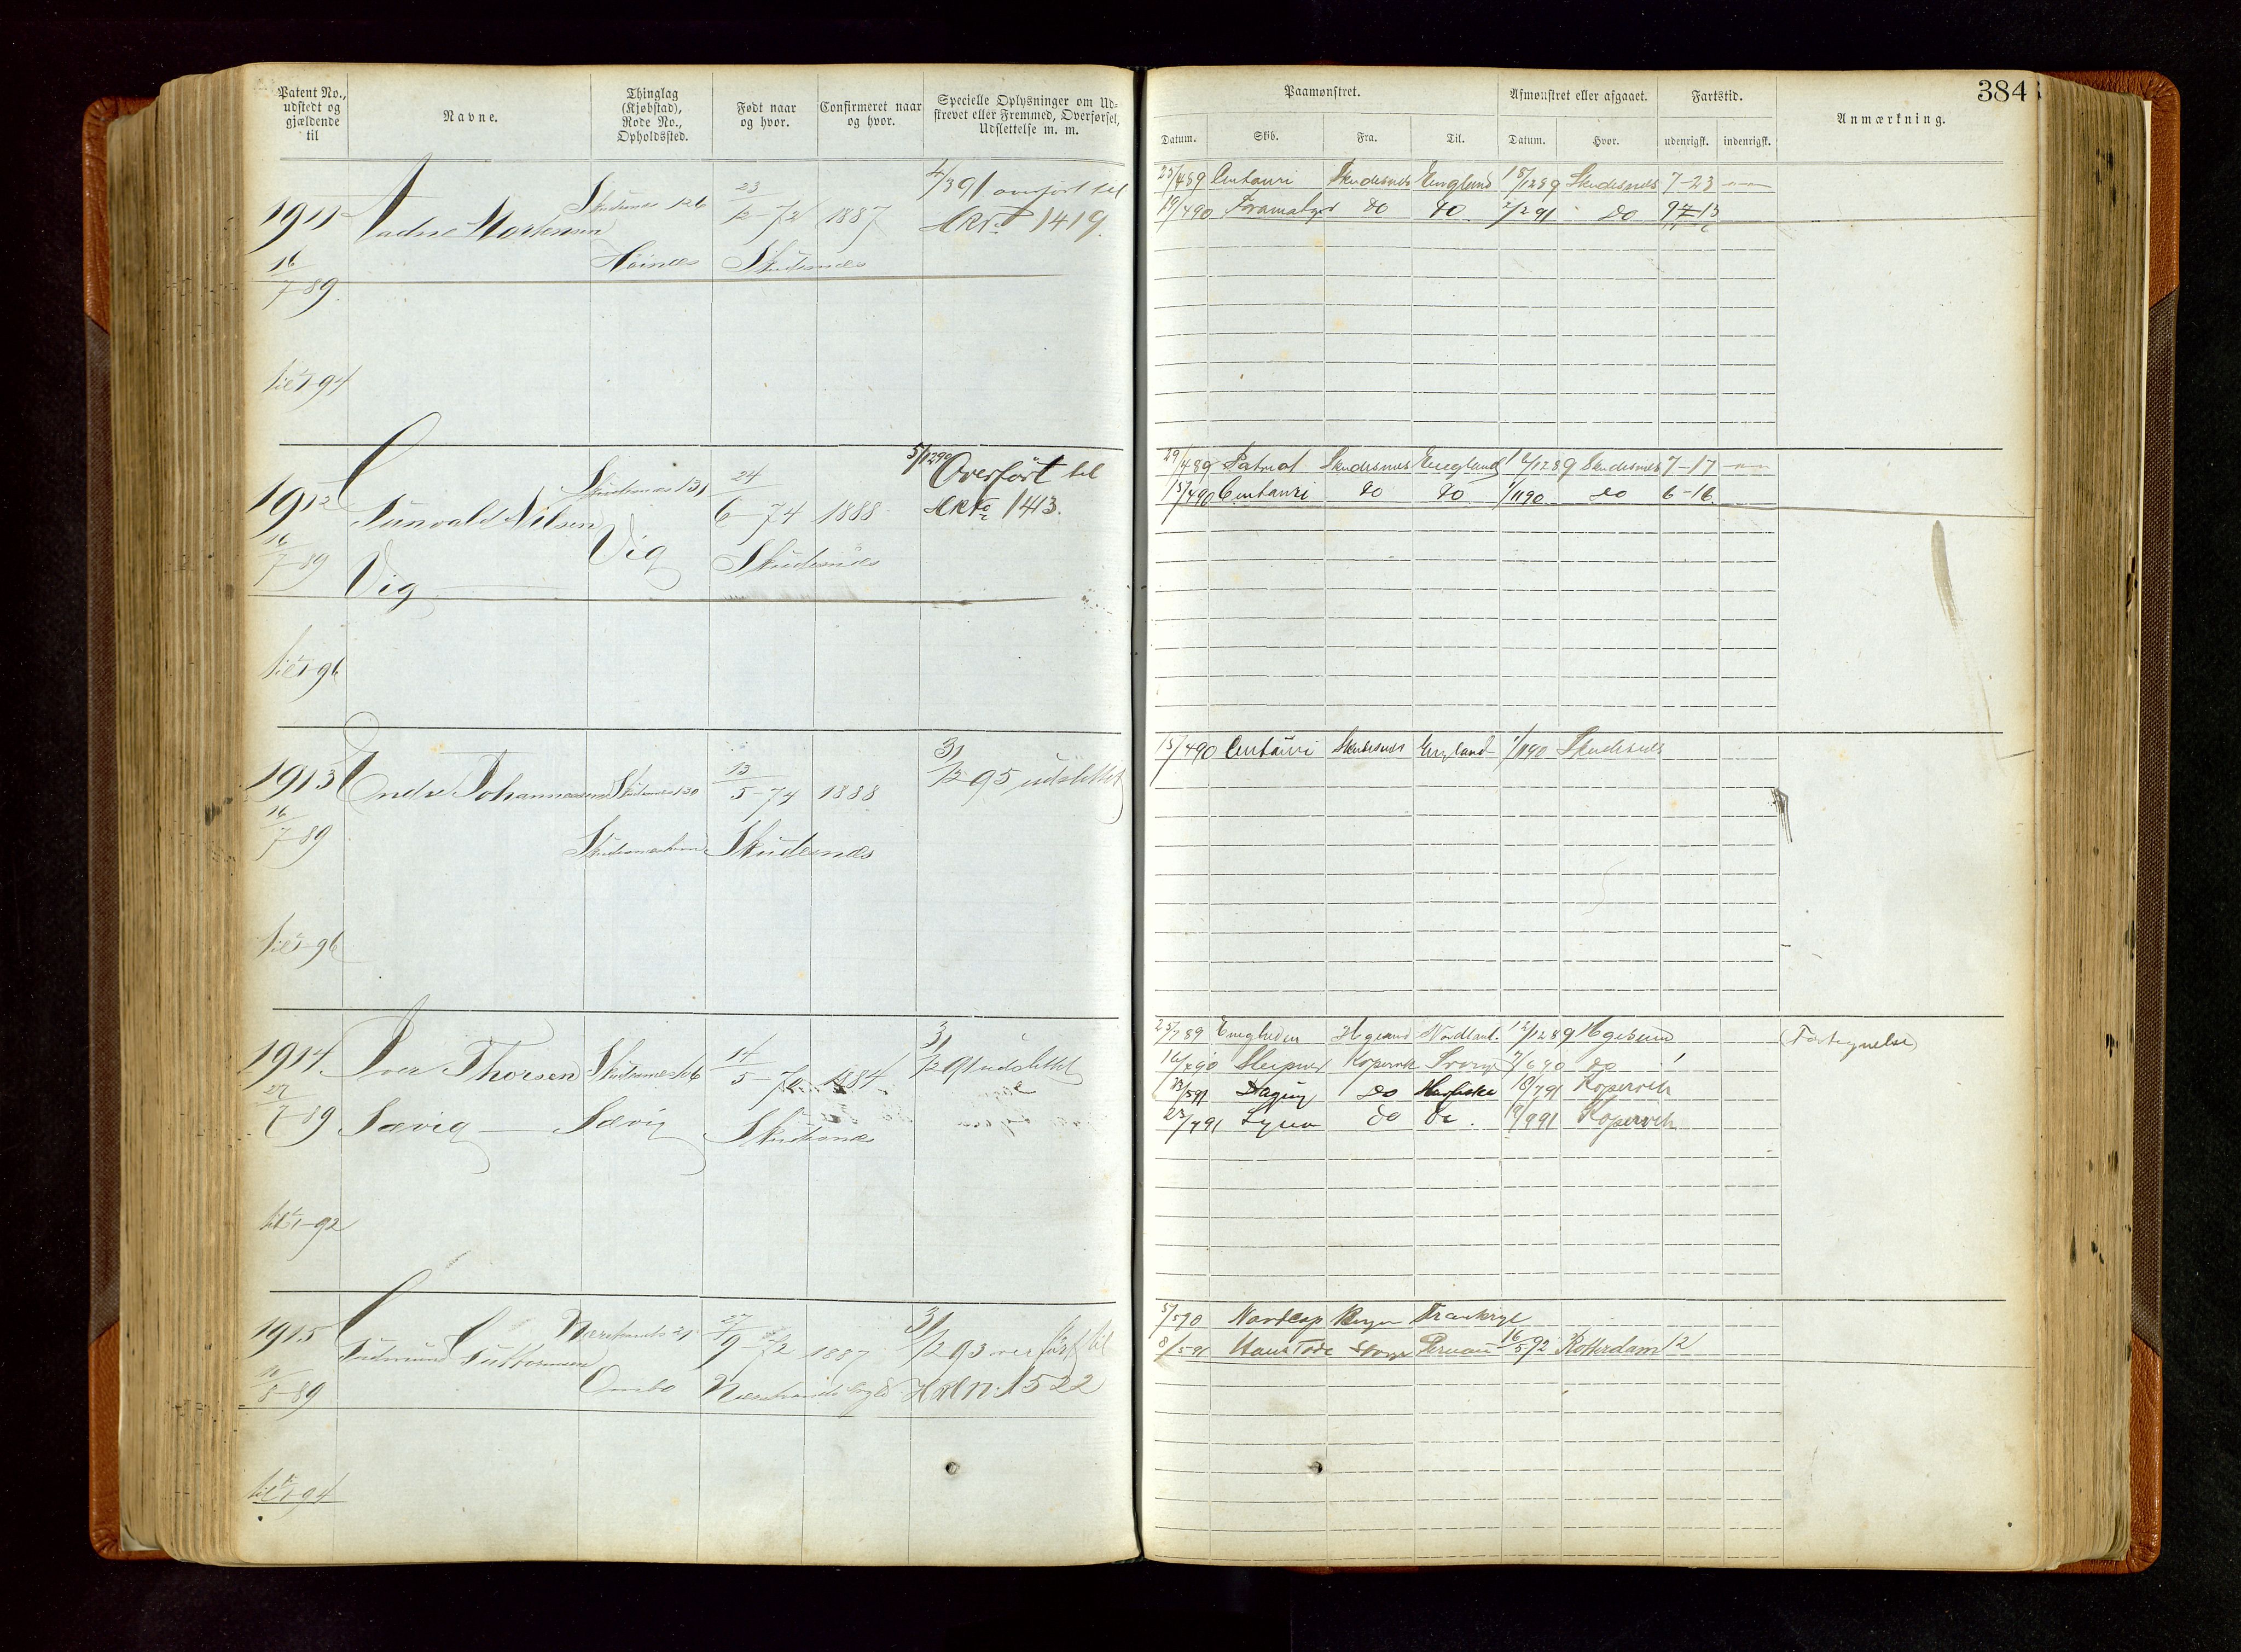 Patent No.,
udstedt og
gjældende
til
Navne.
Thinglag
(Kjøbstad),
Rode No.,
Opholdssted.
Født naar
og hvor.
Confirmeret naar
og hvor.
Specielle Oplysninger om Ud-
skrevet eller Fremmed, Overførsel,
Udslettelse m. m.
Paamønstret.
Afmønstret eller afgaaet.
Fartstid.
Anmærkning.
384
Datum.
Skib.
Fra.
Til.
Datum.
Hvor.
udenrigsk.
indenrigsk.
1911
Mortensen
Skudesnæs 126
23/12-72
1887
4/3 91 overført til
1419.
16/7 89
Skudesnæs
til 1-94
23/4 89 Centauri Skudesnes England 18/12 89 Skudesnes 7-23
19/4 90 do do 2/2 91 do
1912
Sunvald Nilsen
Skudesnæs 131
24/6-74
1888
5/12 90 Overført til
1413.
16/7-89
Vig
Vig
Skudesnæs
til 1-96
29/4 89 Patriot Skudesnes England 16/12 89 Skudesnes 7-17
15/4 90 Centauri do do 1/11 90 do 6-16
1913
Endre Johannessen
Skudesnæs 130
13/5-74
1888
3/12 95 udslettet
16/7-89
Skudesnæshavn
Skudesnæs
til 1-96
15/4 90 Centauri Skudesnes England 1/11 90 Skudesnes
1914
Iver Thorsen
Skudesnæs 106
14/5-70
1884
3/12 91 udslettet
27/7-89
Sævig
Sævig
Skudesnæs
til 1-92
23/7 89 Enigheden Nordland 12/12 89
16/4 90 Sleipner Kopervik 7/6 90 do
13/5 91 do 18/7 91 Kopervik
23/7 91 do do 9/9 91 Kopervik
1915
Gudmund Guttormsen
Nærstrands 21
27/9-72
1887
3/12 93 overført til
1522
10/8-89
Ombo
til 1-94
5/5 90 Nordcap Bergen Frankrige
8/5 91 Hans Tode 16/5 92 Rotterdam 12